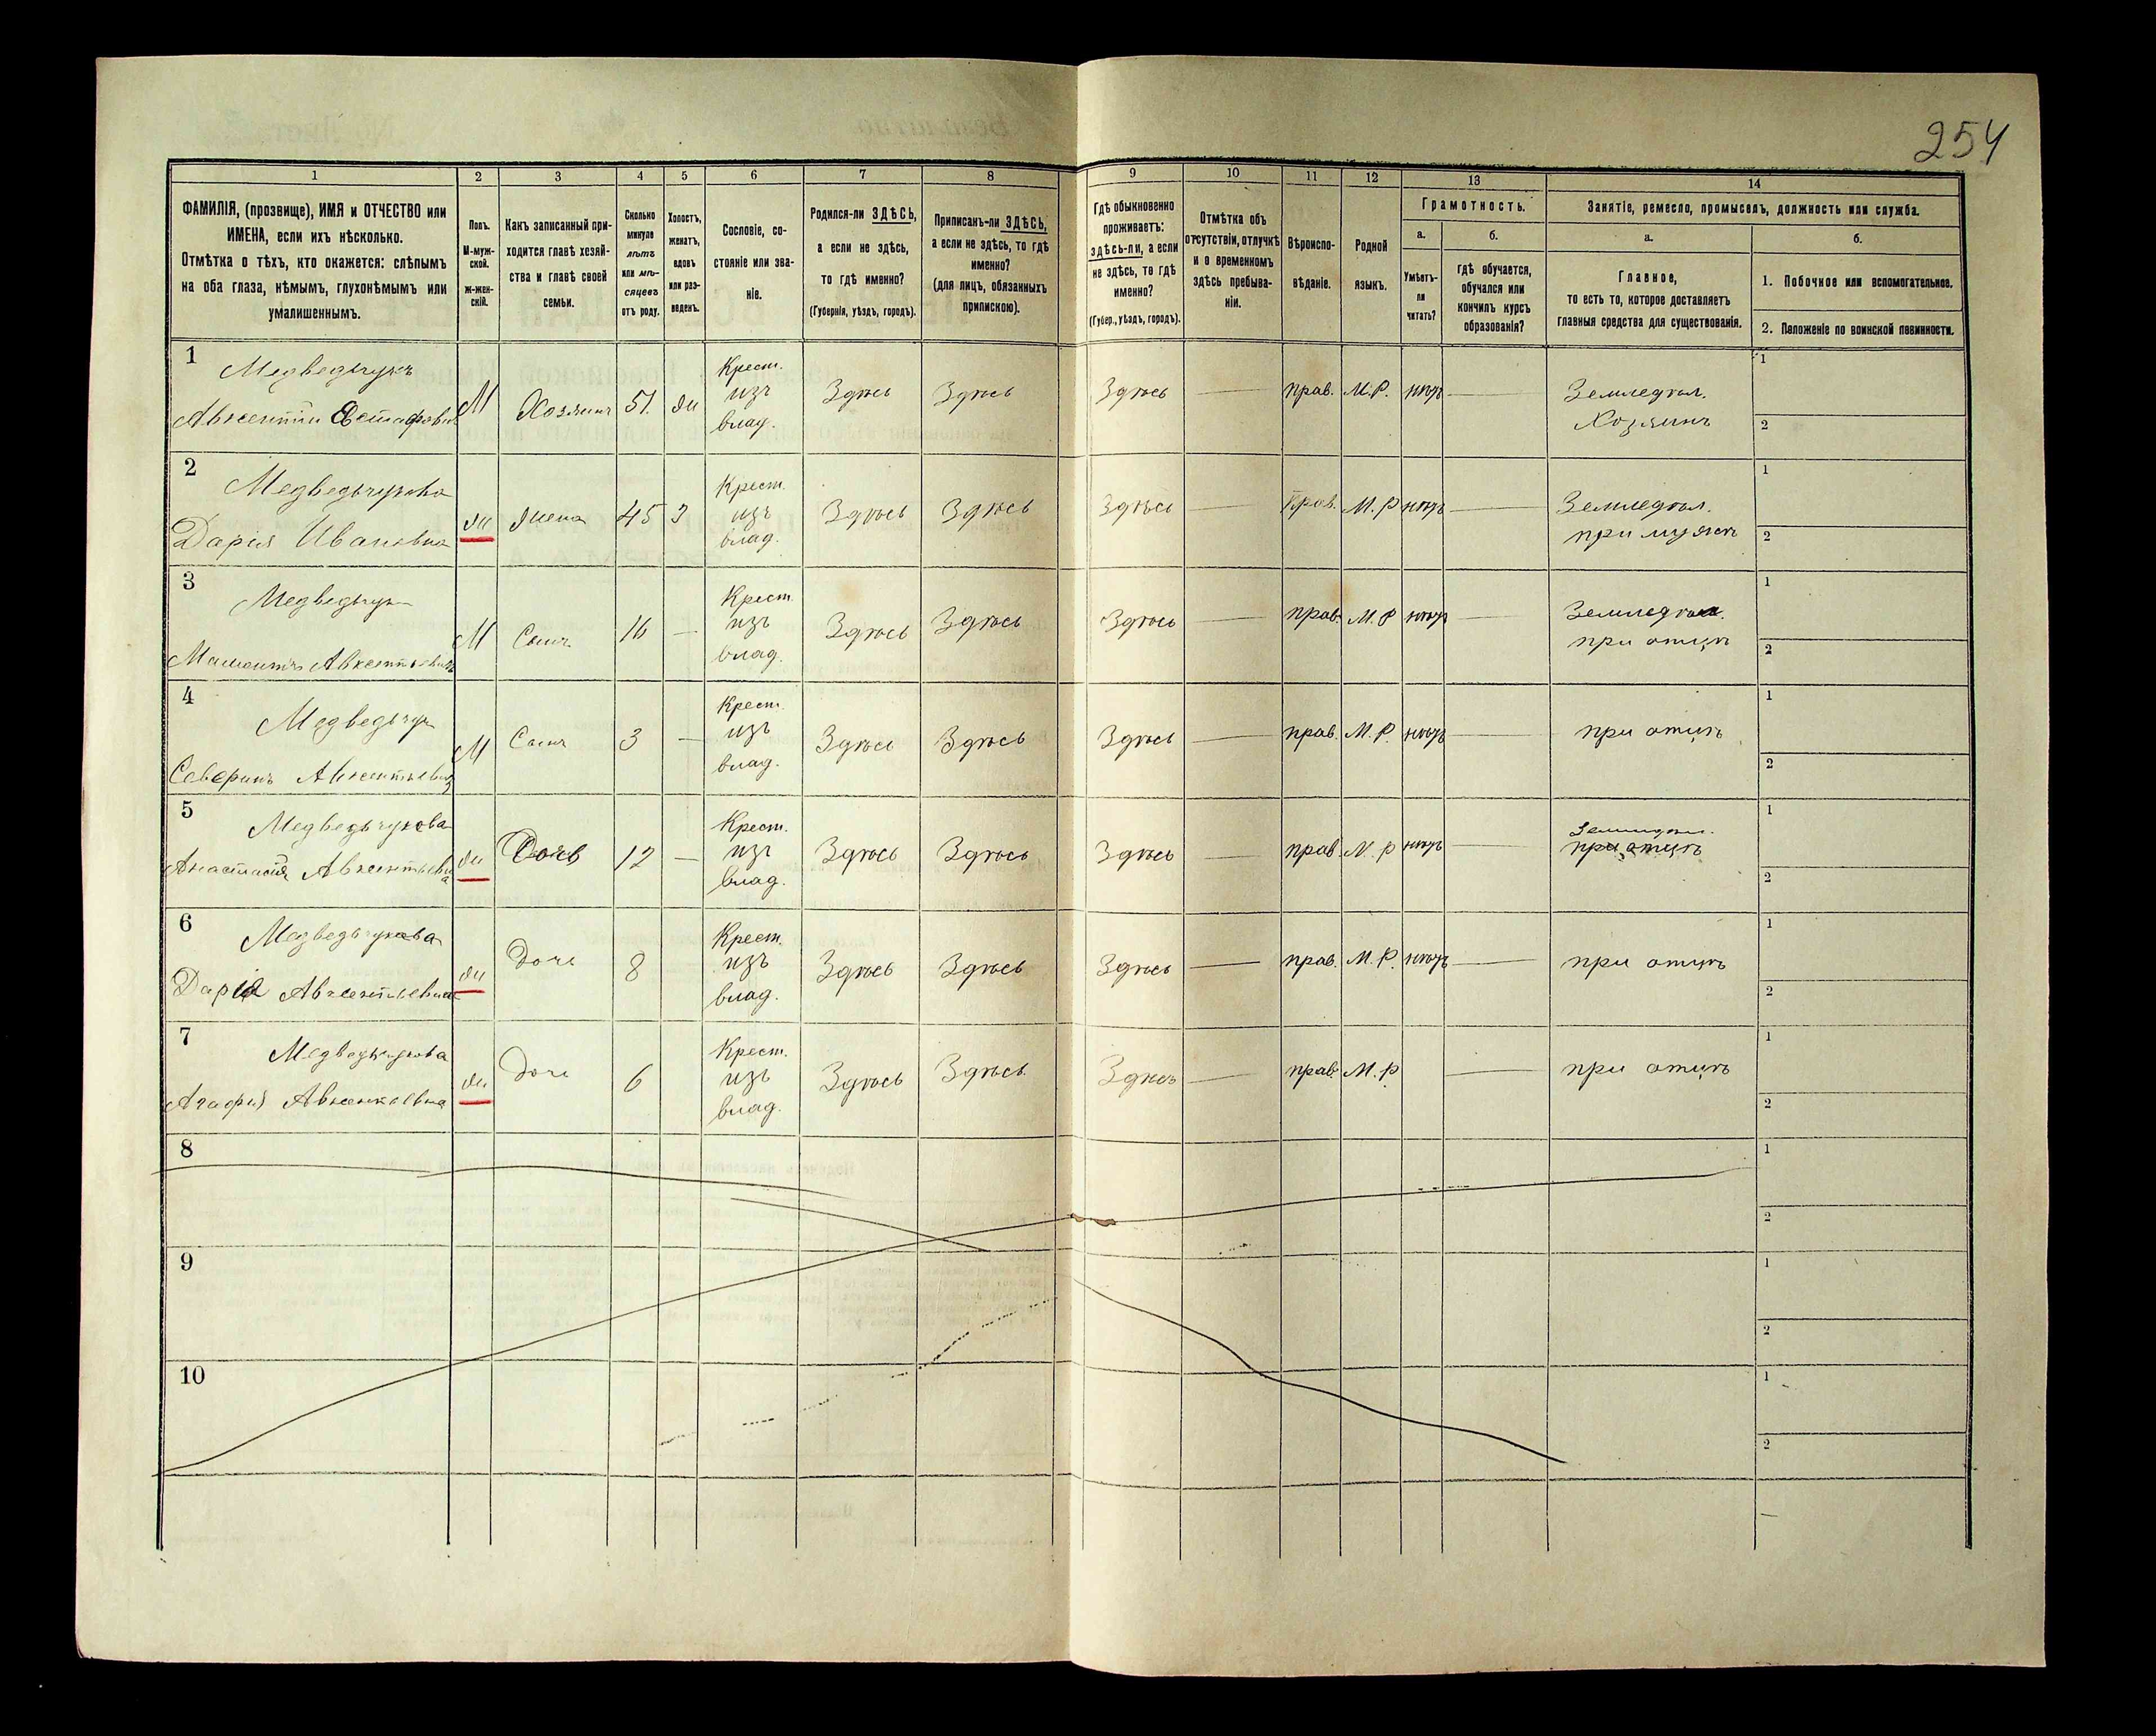 254
1 2 3 4 5 6 7 8 9 10 11 12 13 14
ФАМИЛІЯ, (прозвище), ИМЯ и ОТЧЕСТВО или
ИМЕНА, если ихъ нѣсколько.
Отмѣтка о тѣхъ, кто окажется: слѣпымъ
на оба глаза, нѣмымъ, глухонѣмымъ или
умалишеннымъ.
Полъ.
М-муж-
ской.
Ж-жен-
скій.
Какъ записанный при-
ходится главѣ хозяй-
ства и главѣ своей
семьи.
Сколько
минуло
лѣтъ
или мѣ-
сяцевъ
отъ роду.
Холостъ,
женатъ,
вдовъ
или раз-
веденъ.
Сословіе, со-
стояніе или зва-
ніе.
Родился-ли ЗДѢСЬ,
а если не здѣсь,
то гдѣ именно?
(Губернія, уѣздъ, городъ).
Приписанъ-ли ЗДѢСЬ,
а если не здѣсь, то гдѣ
именно?
(для лицъ, обязанныхъ
припискою).
Гдѣ обыкновенно
проживаетъ:
здѣсь-ли, а если
не здѣсь, то гдѣ
именно?
(Губер., уѣздъ, городъ).
Отмѣтка объ
отсутствіи, отлучкѣ
и о временномъ
здѣсь пребыва-
ніи.
Вѣроиспо-
вѣданіе.
Родной
языкъ.
Грамотность.
а.
Умѣетъ-
ли
читать?
б.
Гдѣ обучается,
обучался или
кончилъ курсъ
образованія?
Занятіе, ремесло, промыселъ, должность или служба.
а.
Главное,
то есть то, которое доставляетъ
главныя средства для существованія.
б.
1. Побочное или вспомогательное.
2. Положеніе по воинской повинности.
1
Медведчукъ
Авксентій Естафовъ
М Хозяинъ 51. ж
Крест.
изъ
влад.
Здѣсь Здѣсь Здѣсь — прав. М.Р. нѣтъ —
Земледѣл.
Хозяинъ
1
2
2
Медведчукова
Дарія Ивановна
ж жена 45 З
Крест.
изъ
влад.
Здѣсь Здѣсь Здѣсь — Прав. М.Р нѣтъ —
Земледѣл.
при мужѣ
1
2
3
Медведчук
Мамонтъ Авксентьевъ
М Сынъ 16 —
Крест.
изъ
влад.
Здѣсь Здѣсь Здѣсь — прав. М.Р нѣтъ —
Земледѣл.
при отцѣ
1
2
4
Медведчук
Северинъ Авксентьевъ
М Сынъ 3 —
Крест.
изъ
влад.
Здѣсь Здѣсь Здѣсь — прав. М.Р. нѣтъ —
при отцѣ
1
2
5
Медведчукова
Анастасія Авксентьевна
ж Дочь 12 —
Крест.
изъ
влад.
Здѣсь Здѣсь Здѣсь — прав. М.Р нѣтъ —
Земледѣл.
при отцѣ
1
2
6
Медведчукова
Дарія Авксентьевна
ж Дочь 8
Крест.
изъ
влад.
Здѣсь Здѣсь Здѣсь — прав. М.Р. нѣтъ —
при отцѣ
1
2
7
Медведчукова
Агафія Авксентьевна
ж Дочь 6
Крест.
изъ
влад.
Здѣсь Здѣсь Здѣсь — прав. М.Р —
при отцѣ
1
2
8
1
2
9
1
2
10
1
2